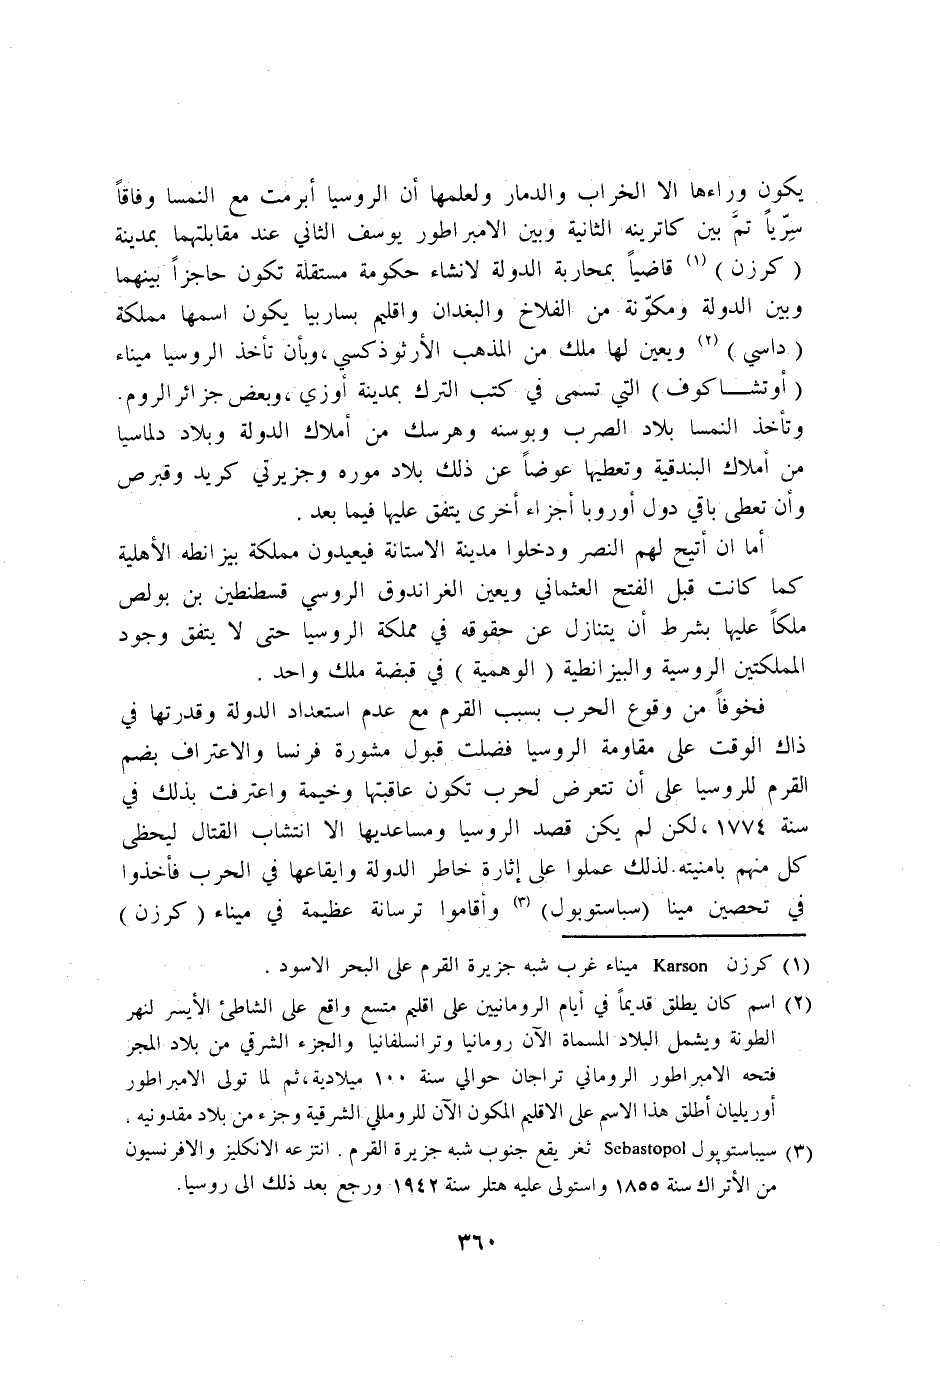 يكون وراءها الا الخراب والدمار ولعلمها أن الروسيا أبرمت مع النمسا وفاقاً
سِرّياً تمَّ بين كاترينه الثانية وبين الامبراطور يوسف الثاني عند مقابلتهما بمدينة
( كرزن ) (١) قاضياً بمحاربة الدولة لانشاء حكومة مستقلة تكون حاجزاً بينهما
وبين الدولة ومكوّنة من الفلاخ والبغدان واقليم بساربيا يكون اسمها مملكة
( داسي ) (٢) ويعين لها ملك من المذهب الأرثوذكسي ،وبأن تأخذ الروسيا ميناء
( أوتشـــاكوف ) التي تسمى في كتب الترك بمدينة أوزي ،وبعض جزائر الروم.
وتأخذ النمسا بلاد الصرب وبوسنه وهرسك من أملاك الدولة وبلاد دلماسيا
من أملاك البندقية وتعطيها عوضاً عن ذلك بلاد موره وجزيرتي كريد وقبرص
وأن تعطى باقي دول أوروبا أجزاء أخرى يتفق عليها فيما بعد .
أما ان أتيح لهم النصر ودخلوا مدينة الاستانة فيعيدون مملكة بيزانطه الأهلية
كما كانت قبل الفتح العثماني ويعين الغراندوق الروسي قسطنطين بن بولص
ملكاً عليها بشرط أن يتنازل عن حقوقه في مملكة الروسيا حتى لا يتفق وجود
المملكتين الروسية والبيزانطية ( الوهمية ) في قبضة ملك واحد .
فخوفاً من وقوع الحرب بسبب القرم مع عدم استعداد الدولة وقدرتها في
ذاك الوقت على مقاومة الروسيا فضلت قبول مشورة فرنسا والاعتراف بضم
القرم للروسيا على أن تتعرض لحرب تكون عاقبتها وخيمة واعترفت بذلك في
سنة ١٧٧٤ ،لكن لم يكن قصد الروسيا ومساعديها الا انتشاب القتال ليحظى
كل منهم بامنيته.لذلك عملوا على إثارة خاطر الدولة وايقاعها في الحرب فأخذوا
في تحصين مينا (سباستوبول) (٣) وأقاموا ترسانة عظيمة في ميناء ( كرزن )
(١) كرزن Karson ميناء غرب شبه جزيرة القرم على البحر الاسود .
(٢) اسم كان يطلق قديماً في أيام الرومانيين على اقليم متسع واقع على الشاطئ الأيسر لنهر
الطونة ويشمل البلاد المسماة الآن رومانيا وترانسلفانيا والجزء الشرقي من بلاد المجر
فتحه الامبراطور الروماني تراجان حوالي سنة ١٠٠ ميلادية،ثم لما تولى الامبراطور
أوريليان أطلق هذا الاسم على الاقليم المكون الآن للروملي الشرقية وجزء من بلاد مقدونيه .
(٣) سيباستوپول Sebastopol ثغر يقع جنوب شبه جزيرة القرم . انتزعه الانكليز والافرنسيون
من الأتراك سنة ١٨٥٥ واستولى عليه هتلر سنة ١٩٤٢ ورجع بعد ذلك الى روسيا.
٣٦٠